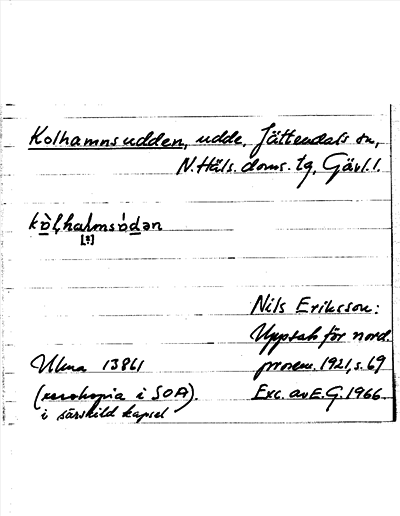 Kolhamnsudden, udde, Jättendals sn,
N. Häls. doms. tg, Gävl. l.
kòlhalmsódən
[?]
Nils Eriksson:
Uppsats för nord.
Ulma 13861
prosem. 1921, s. 69
(xerokopia i SOA).
Exc. av E.G. 1966.
i särskild kapsel